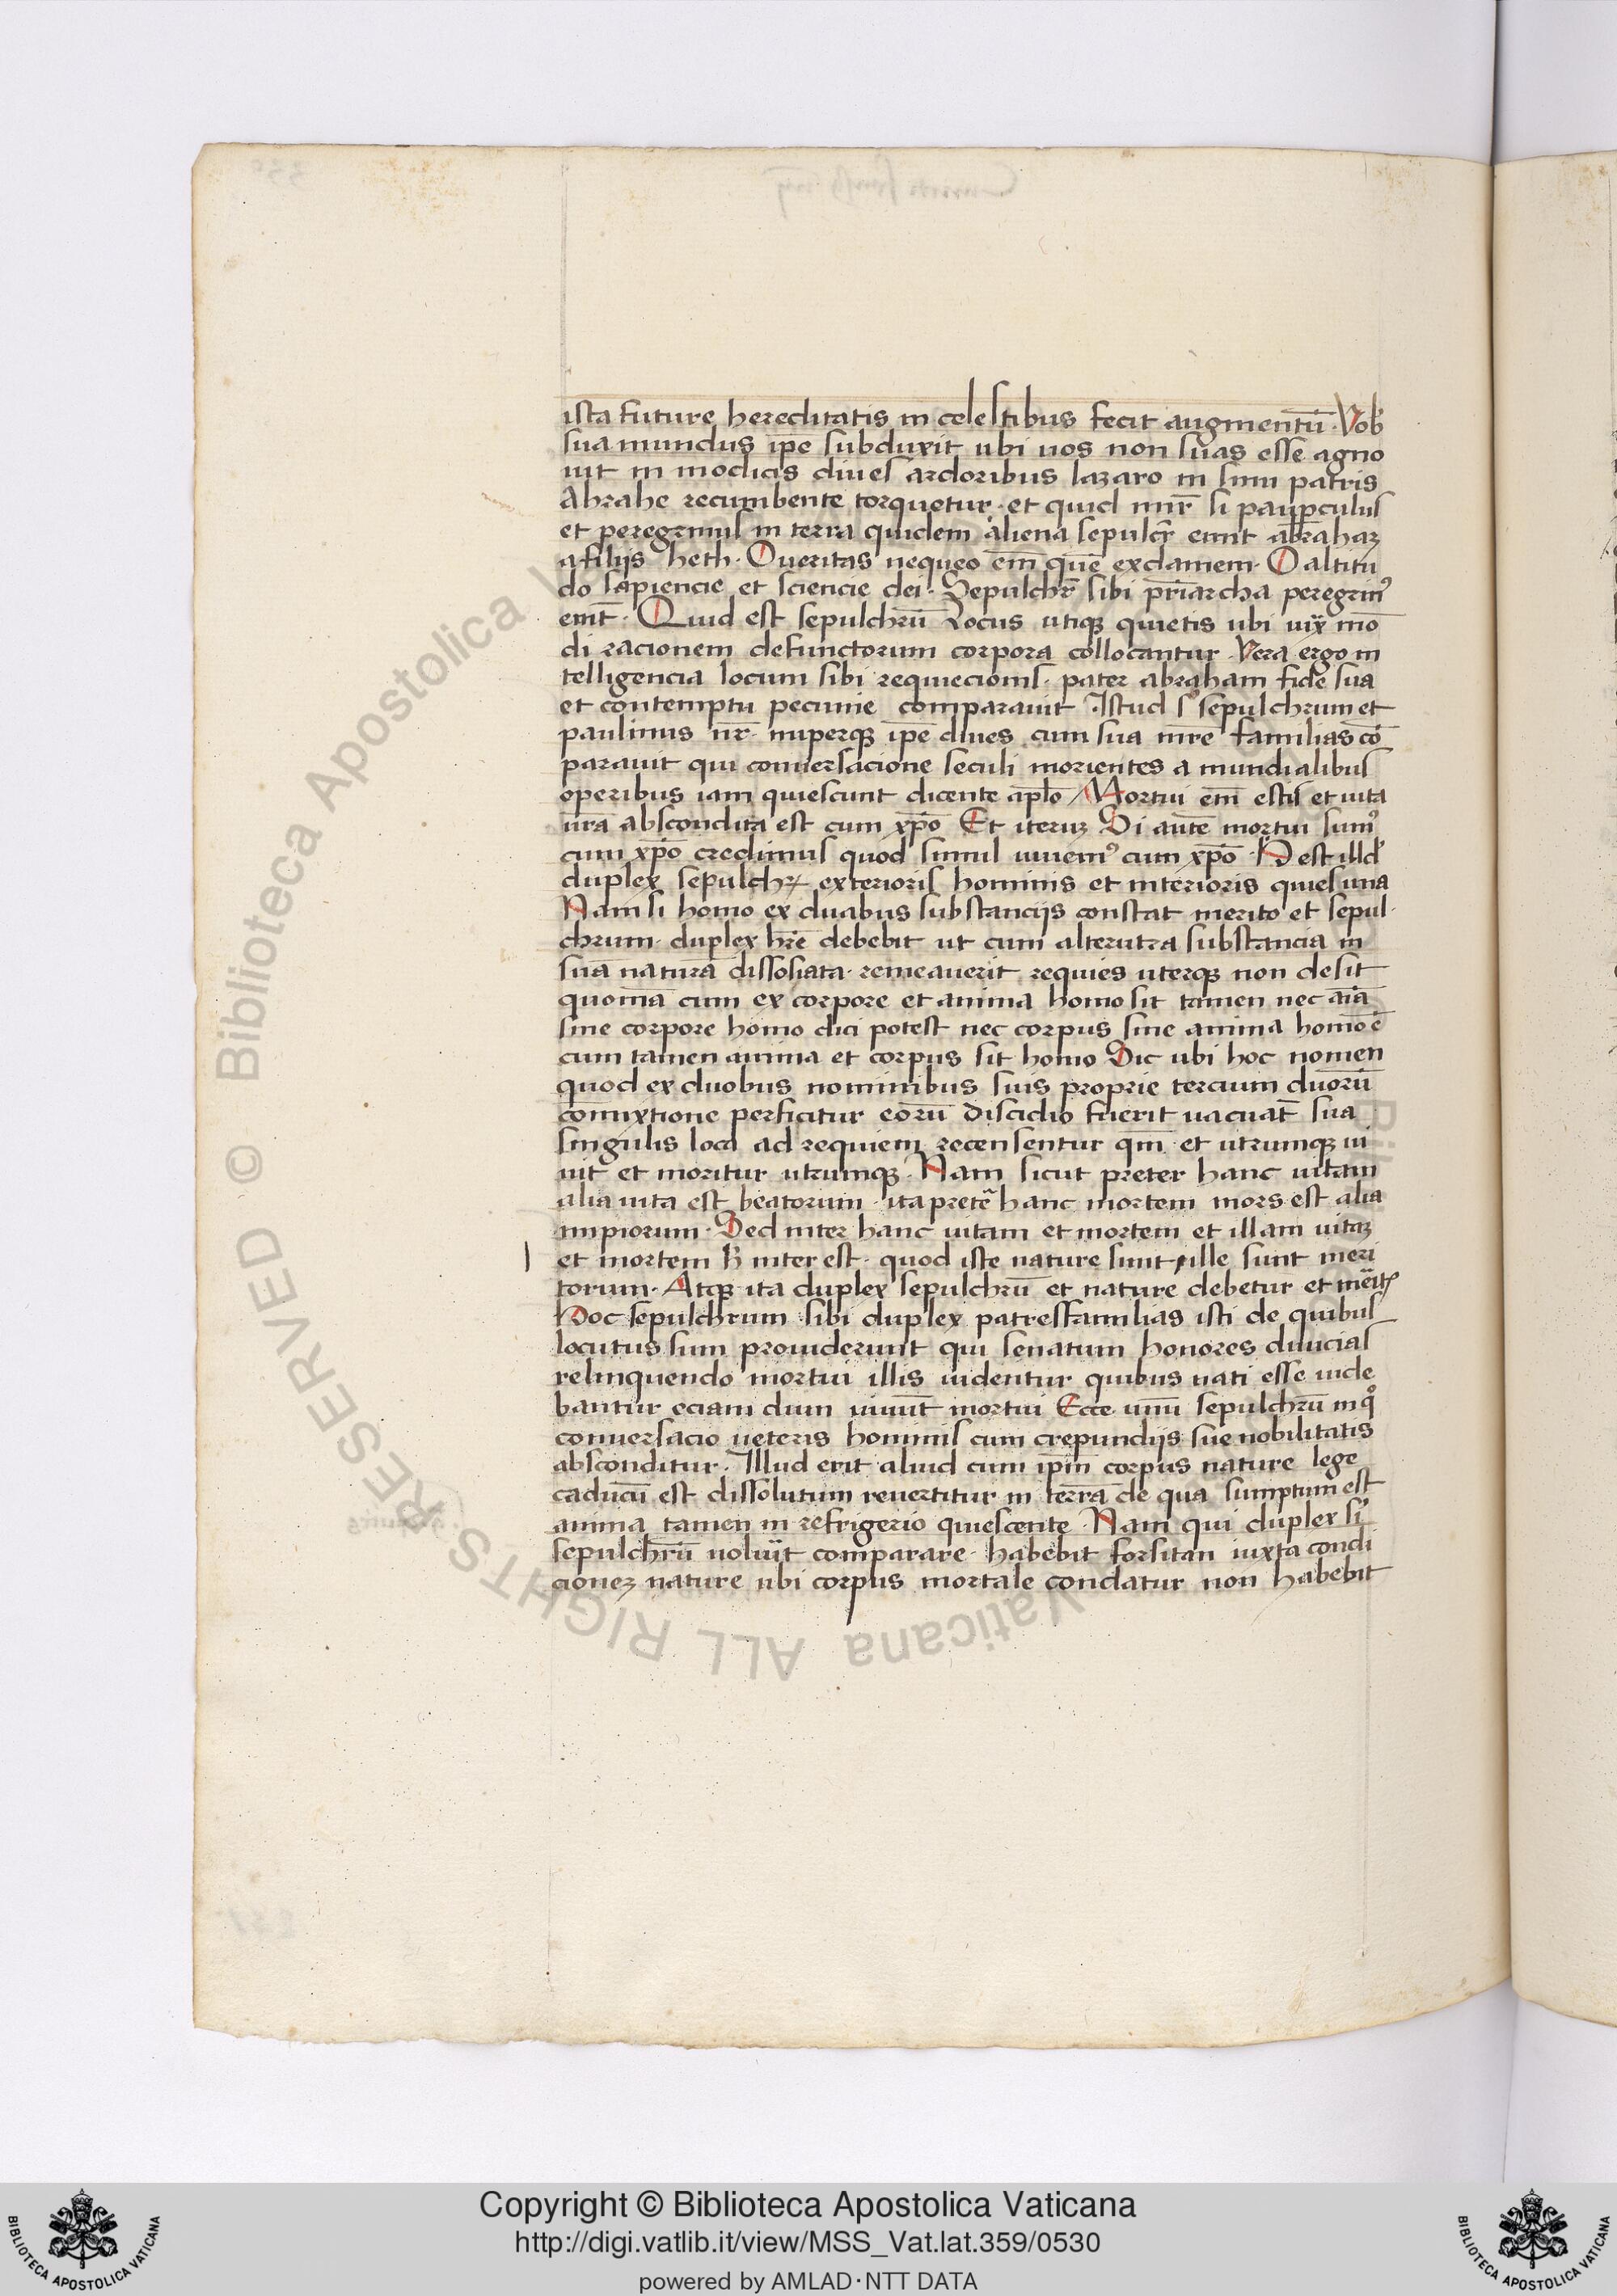 ista future hereditatis in celestibus fecit augmentū · Vob
sua mundus ip̄e subduxit ubi uos non suas esse agno
uit in modicis diues ardoribus lazaro in sinu patris
Abrahe recumbente torquetur · et quid mir̄ si paup̱culus
et peregrinus in terra quidem aliena sepulcr̄ emit abrahaꝫ
a filijs heth · O ueritas nequeo em̄ quē exclamem · O altitu
do sapiencie et sciencie dei · Sepulchr̄ sibi pr̄iarcha peregrin᾽
emīt · Quid est sepulchrū Locus utiqꝫ quietis ubi uix̄ mō
di racionem defunctorum corpora collocantur · Vera ergo in
telligencia locum sibi requiecionis · pater abraham fide sua
et contemptu pecunie comparauit Istud s᷒ sepulchrum et
paulinus nr̄ · nuperqꝫ ip̄e diues cum sua mr̄e familias cō
parauit qui conuersacione seculi morientes a mundialibus
operibus iam quiescunt dicente apl̄o / Mortui em̄ estis et uita
ūra abscondita est cum xp̄o Et iteruꝫ Si autē mortui sum᾽
cum xp̄o credimus quod simul uiuem᾽ cum xp̄o · H est illd᾽
duplex sepulchꝝ exterioris hominis et interioris quies una
Nam si homo ex duabus substancijs constat merito et sepul·
chrum · duplex hr̄e debebit ut cum alterutra substancia in
suā naturā dissosiata · remeauerit requies uterqꝫ non desit
quoniā cum ex corpore et anima homo sit tamen nec aīa
sine corpore homo dici potest nec corpus sine anima homo ē
cum tamen anima et corpus sit homo Sic ubi hoc nomen
quod ex duobus nominibus suis proprie tercium duorū
cōmixtione perficitur eorū discidio fuerit uacuat̄ sua
singulis loca ad requiem recensentur qm̄ et utrumqꝫ ui
uit et moritur utrumqꝫ · Nam sicut preter hanc uitam
alia uita est beatorum · ita pretē hanc mortem mors est alia
impiorum · Sed inter hanc uitam et mortem et illam uitaꝫ
et mortem h̄ inter est · quod iste nature sunt, ille sunt meri
torum · Atqꝫ ita duplex sepulchrū et nature debetur et merit᾽
Hoc sepulchrum sibi duplex patresfamilias isti de quibus
locutus sum prouiderunt qui senatum honores diuicias
relinquendo mortui illis uidentur quibus nati esse uide
bantur eciam dum uiuūt mortui Ecce unū sepulchrū in qͦ
conuersacio ueteris hominis cum crepundijs sue nobilitatis
absconditur · Illud erit aliud cum ip̄m corpus nature lege
caducū est dissolutum reuertitur in terrā de qua sumptum est
anima tamen in refrigerio quiescente · Nam qui duplex si
sepulchrū noluīt comparare · habebit forsitan iuxta condi
cioneꝫ nature ubi corpus mortale condatur non habebit
Copyright © Biblioteca Apostolica Vaticana
http://digi.vatlib.it/view/MSS_Vat.lat.359/0530
powered by AMLAD·NTT DATA
BIBLIOTECA APOSTOLICA VATICANA
BIBLIOTECA APOSTOLICA VATICANA
© Biblioteca Apostolica Vaticana ALL RIGHTS RESERVED